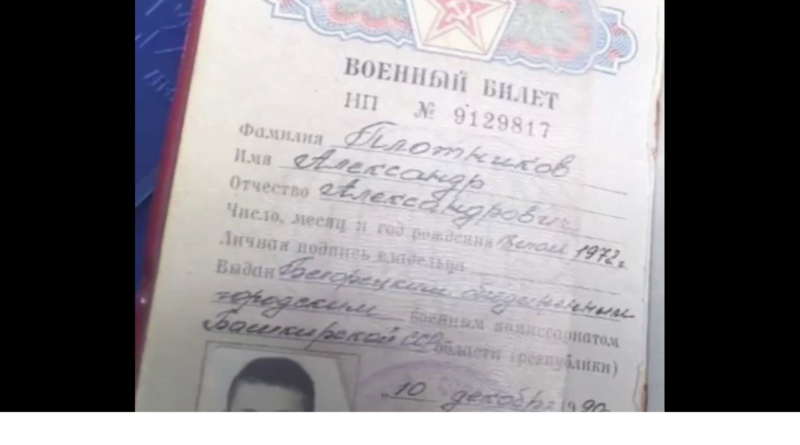 ВОЕННЫЙ БИЛЕТ
НП № 9129817
Фамилия Плотников
Имя Александр
Отчество Александрович
Число, месяц и год рождения 1972г
Личная подпись владельца
Выдан Белорецким
городским военным комиссариатом
Башкирской ССР области (республики)
„10 декабря 1990